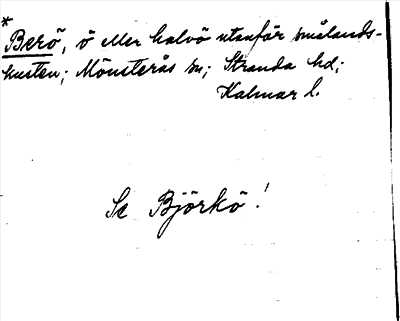 *
Berö, ö eller halvö utanför smålands-
kusten; Mönsterås sn; Stranda hd;
Kalmar l.
Se Björkö!